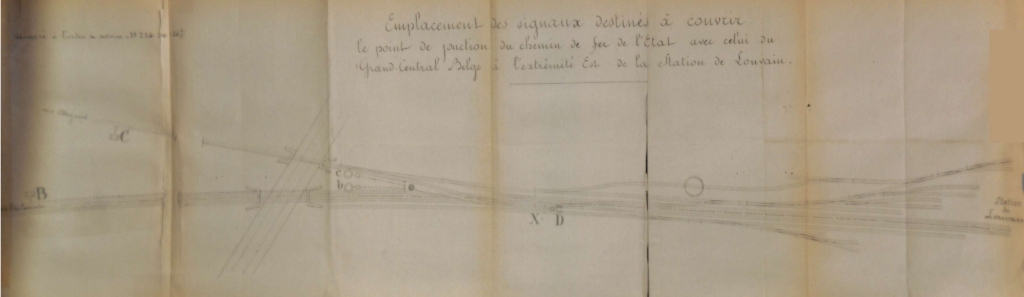 Emplacement des signaux destinés à couvrir
le point de jonction du chemin de fer de l'État avec celui du
Grand Central Belge à l'extrémité Est de la Station de Louvain.
Annexe à l'ordre de service
C
c
B
b
e
X D
Station
de
Louvain